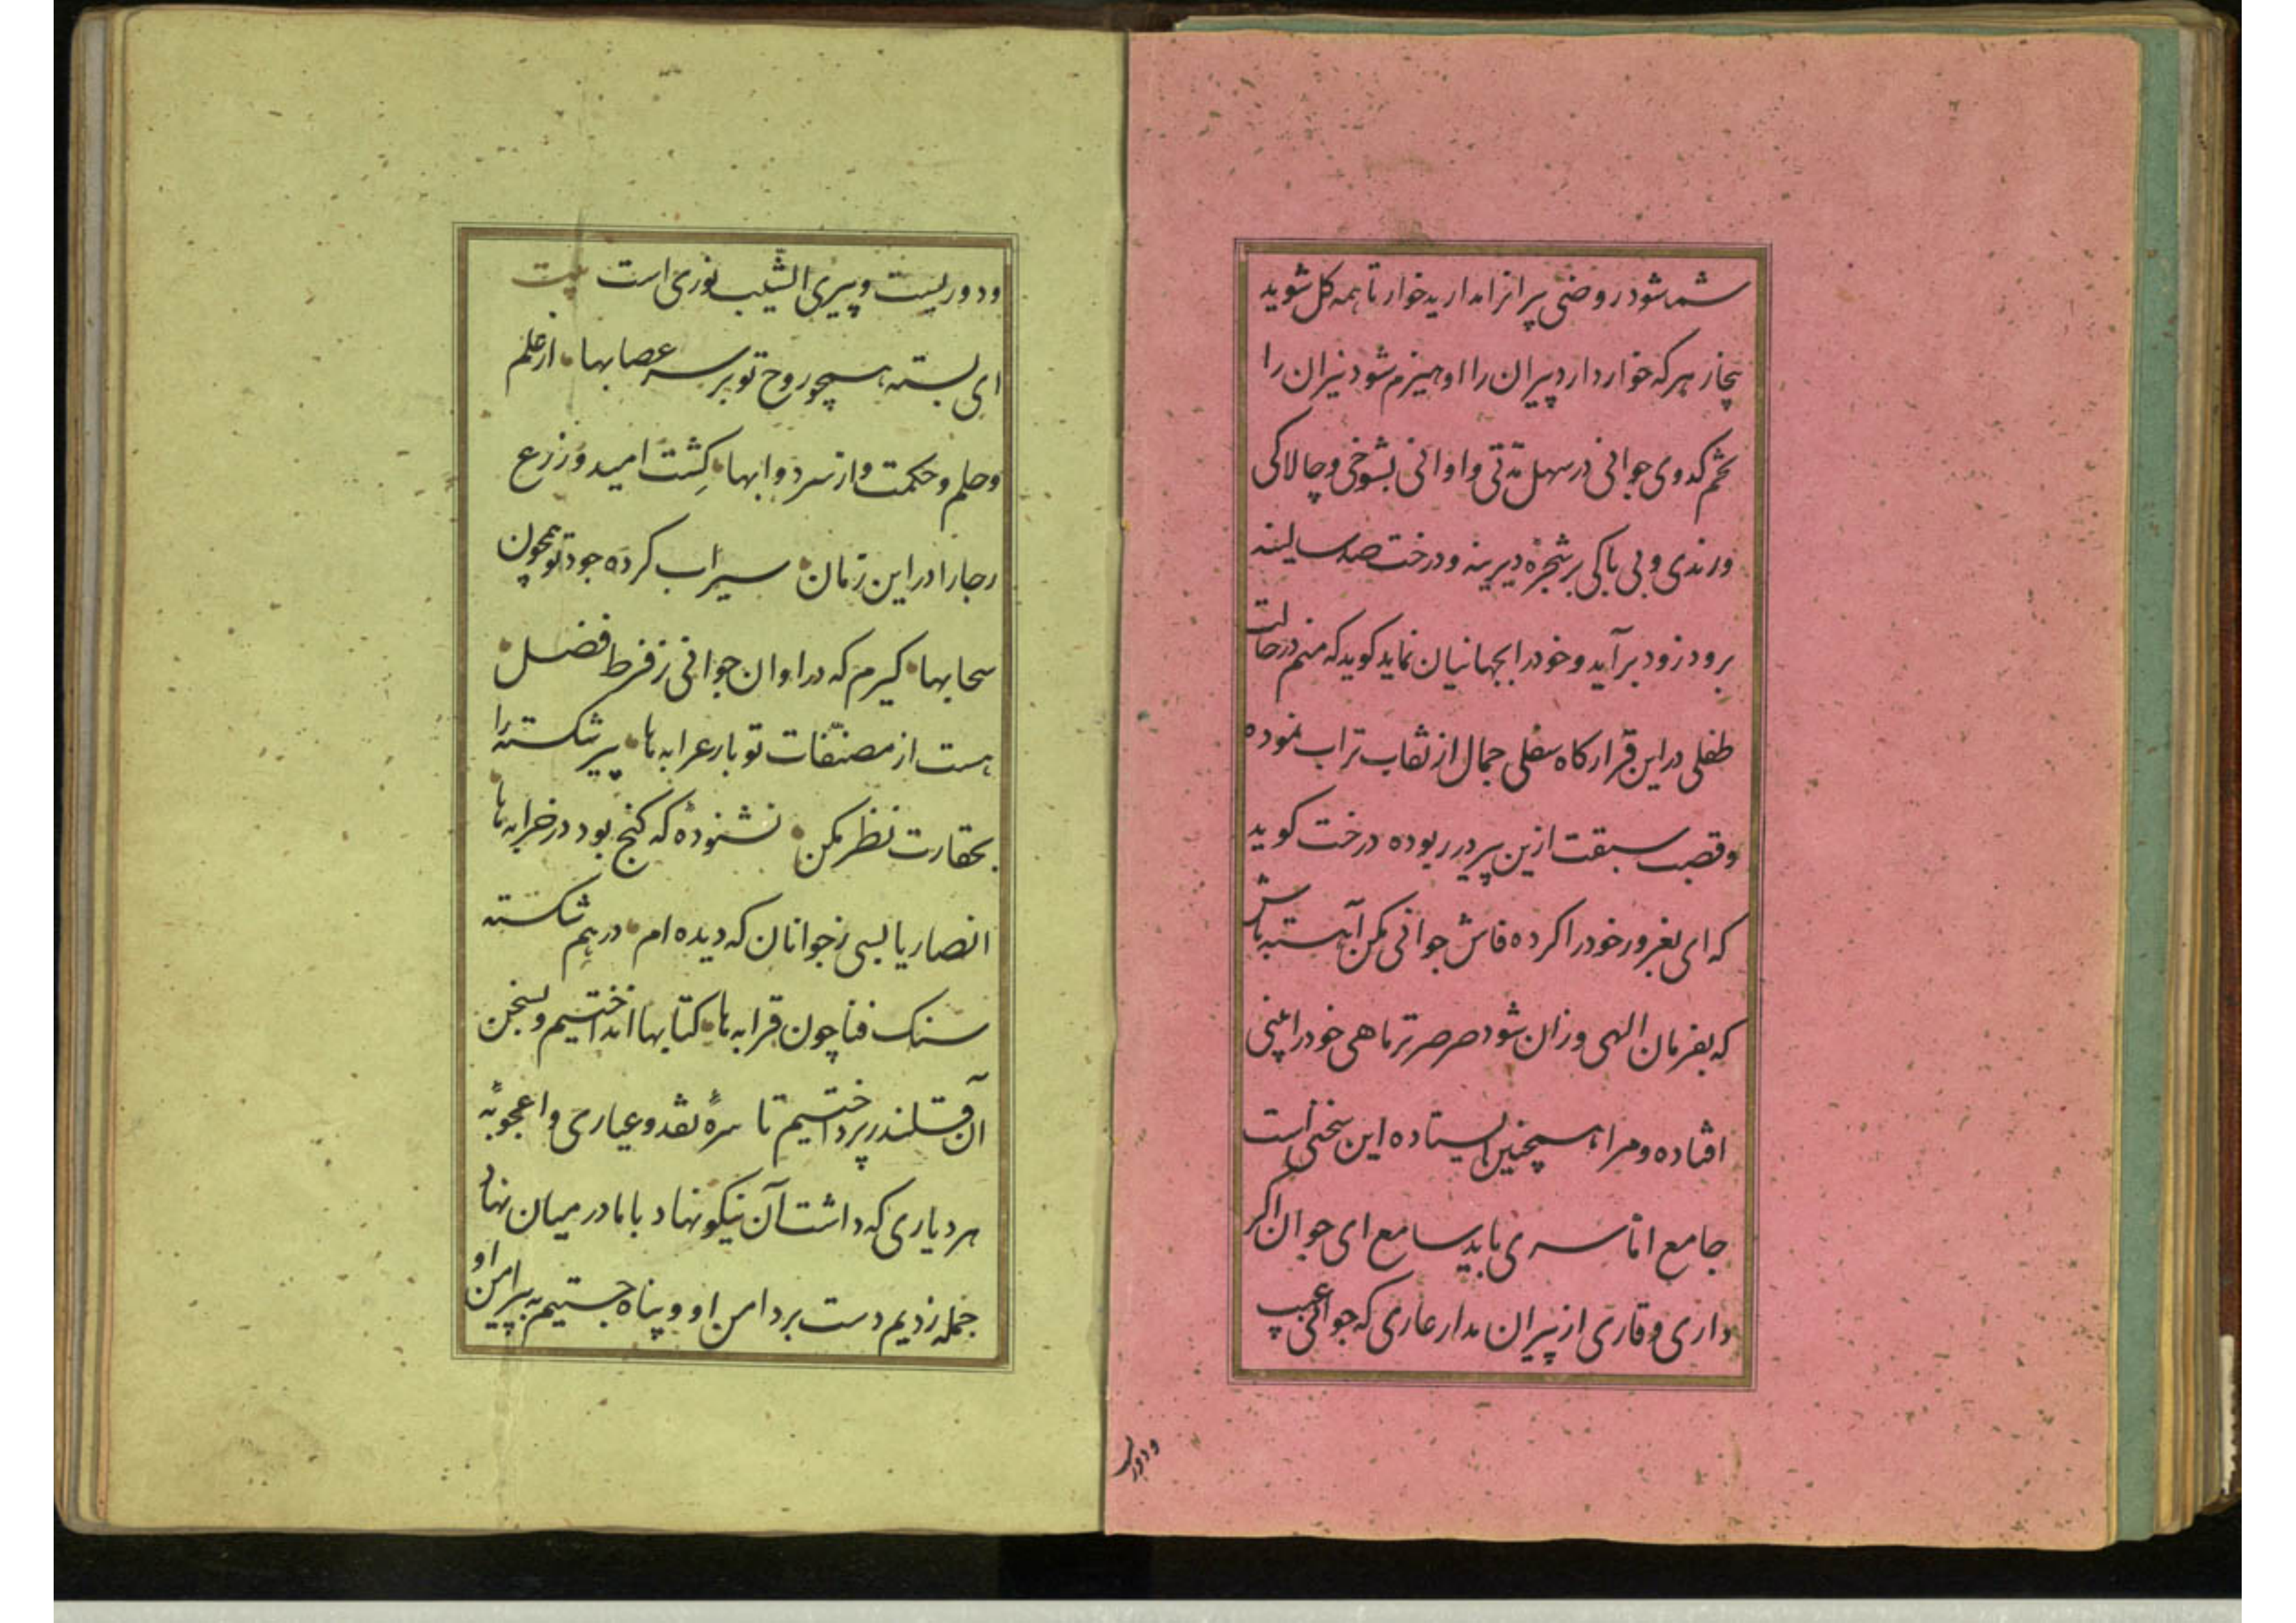 شمشود روضی پیرانرا مدارید خوار تا همه کل شوید
بیخار هرکه خوار دارد پیران را او هیزم شود نیران را
تخم کدوی جوانی در سهل مدّتی و اوانی بشوخی و چالاکی
ورندی و بی باکی بر شجرهٔ دیرینه و درخت صد سالینه
برود زود برآید و خود را بجهانیان نماید کوید که منم در حالت
طفلی در این قرارکاه سفلی جمال از نقاب تراب نموده
وقصب سبقت ازین پیر دیر ربوده درخت کوید
که ای بغرور خود را کرده فاش جوانی مکن آهسته باش
که بفرمان الهی وزان شود صرصر تر ماهی خود را بینی
افتاده و مرا همچنین ایستاده این سخنی است
جامع امّا سری باید سامع ای جوان اکر
داری وقاری از پیران مدار عاری که جوانی عیب
و دوریست
ودوریست و پیری الشّیب نوری است بیت
ای بسته همچو روح تو بر سر عصابها از علم
وحلم و حکمت و از سرد وابها کِشت امید وزرع
رجا را در این زمان سیراب کرده جود تو همچون
سحابها کیرم که در اوان جوانی ز فرط فضل
هست از مصنّفات تو بار عرابه ها پیر شکسته را
بحقارت نظر مکن نشنودهٔ که کنج بود در خرابه ها
انصاریا بسی ز جوانان که دیده ام درهم شکسته
سنک فنا چون قرابه ها کتابها انداختیم و بسخن
آن قلندر پرداختیم تا سرهٔ نقد و عیاری و اعجوبهٔ
هر دیاری که داشت آن نیکو نهاد با ما در میان نهاد
جمله زدیم دست بر دامن او و پناه جستیم به پیرامن او